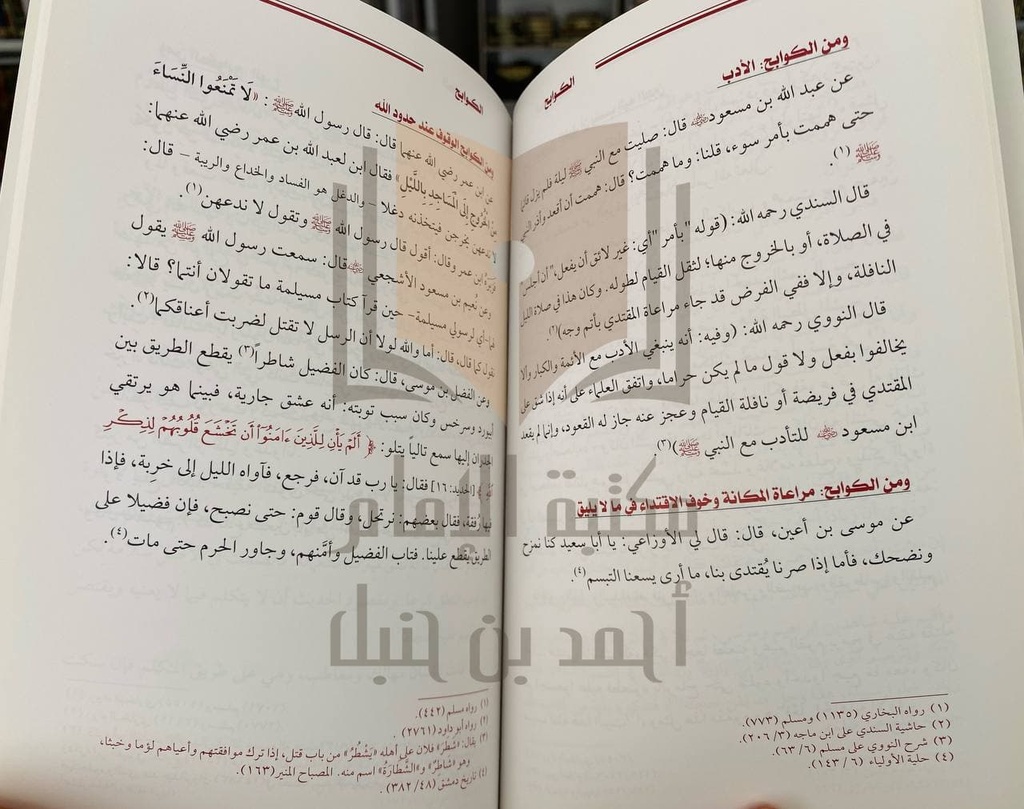 الكوابح
ومن الكوابح: الأدب
عن عبد الله بن مسعود ﷺ قال: صليت مع النبي ﷺ ليلة فلم يزل قائما
حتى هممت بأمر سوء، قلنا: وما هممت؟ قال: هممت أن أقعد وأذر النبي
ﷺ (١).
قال السندي رحمه الله: (قوله "بأمر" أي: غير لائق أن يفعل، "أن أجلس"
في الصلاة، أو بالخروج منها؛ لثقل القيام لطوله. وكان هذا في صلاة الليل
النافلة، وإلا ففي الفرض قد جاء مراعاة المقتدي بأتم وجه)(٢).
قال النووي رحمه الله: (وفيه: أنه ينبغي الأدب مع الأئمة والكبار وألا
يخالفوا بفعل ولا قول ما لم يكن حراما، واتفق العلماء على أنه إذا شق على
المقتدي في فريضة أو نافلة القيام وعجز عنه جاز له القعود، وإنما لم يقعد
ابن مسعود ﷺ للتأدب مع النبي ﷺ)(٣).
ومن الكوابح: مراعاة المكانة وخوف الاقتداء في ما لا يليق
عن موسى بن أعين، قال: قال لي الأوزاعي: يا أبا سعيد كنا نمزح
ونضحك، فأما إذا صرنا يُقتدى بنا، ما أرى يسعنا التبسم(٤).
(١) رواه البخاري (١١٣٥) ومسلم (٧٧٣).
(٢) حاشية السندي على ابن ماجه (٣/ ٢٠٦).
(٣) شرح النووي على مسلم (٦/ ٦٣).
(٤) حلية الأولياء (٦/ ١٤٣).
الكوابح
ومن الكوابح الوقوف عند حدود الله
عن ابن عمر رضي الله عنهما قال: قال رسول الله ﷺ: «لَا تَمْنَعُوا النِّسَاءَ
مِنَ الْخُرُوجِ إِلَى الْمَسَاجِدِ بِاللَّيْلِ» فقال ابن لعبد الله بن عمر رضي الله عنهما:
لا ندعهن يخرجن فيتخذنه دغلا – والدغل هو الفساد والخداع والريبة – قال:
فزبره ابن عمر وقال: أقول قال رسول الله ﷺ وتقول لا ندعهن(١).
وعن نُعيم بن مسعود الأشجعي ﷺ قال: سمعت رسول الله ﷺ يقول
لهما -أي لرسولي مسيلمة- حين قرآ كتاب مسيلمة ما تقولان أنتما؟ قالا:
نقول كما قال، قال: أما والله لولا أن الرسل لا تقتل لضربت أعناقكما(٢).
وعن الفضل بن موسى، قال: كان الفضيل شاطراً(٣) يقطع الطريق بين
أبيورد وسرخس وكان سبب توبته: أنه عشق جارية، فبينما هو يرتقي
الجدران إليها سمع تالياً يتلو: ﴿أَلَمْ يَأْنِ لِلَّذِينَ ءَامَنُوٓا۟ أَن تَخْشَعَ قُلُوبُهُمْ لِذِكْرِ
ٱللَّهِ﴾ [الحديد: ١٦] فقال: يا رب قد آن، فرجع، فآواه الليل إلى خربة، فإذا
فيها رُفقة، فقال بعضهم: نرتحل، وقال قوم: حتى نصبح، فإن فضيلا على
الطريق يقطع علينا. فتاب الفضيل وأمَّنهم، وجاور الحرم حتى مات(٤).
(١) رواه مسلم (٤٤٢).
(٢) رواه أبو داود (٢٧٦١).
(٣) يقال: "شَطَرَ" فلان على أهله "يَشْطُرُ" من باب قتل، إذا ترك موافقتهم وأعياهم لؤما وخبثا،
وهو "شَاطِرٌ" و"الشَّطَارَةُ" اسم منه. المصباح المنير (١٦٣).
(٤) تاريخ دمشق (٤٨/ ٣٨٢).
مكتبة الإمام
أحمد بن حنبل